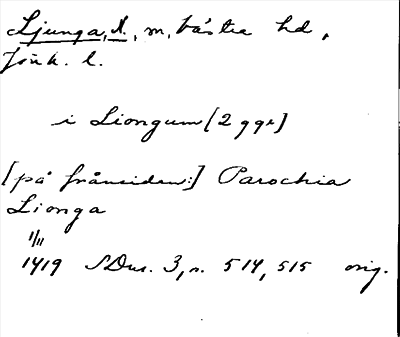 Ljunga, N., m, Västra hd,
Jönk. l.
i Liongum [2 ggr]
[på frånsidan:] Parochia
Lionga
1/11
1419 SDns. 3, n. 514, 515 orig.